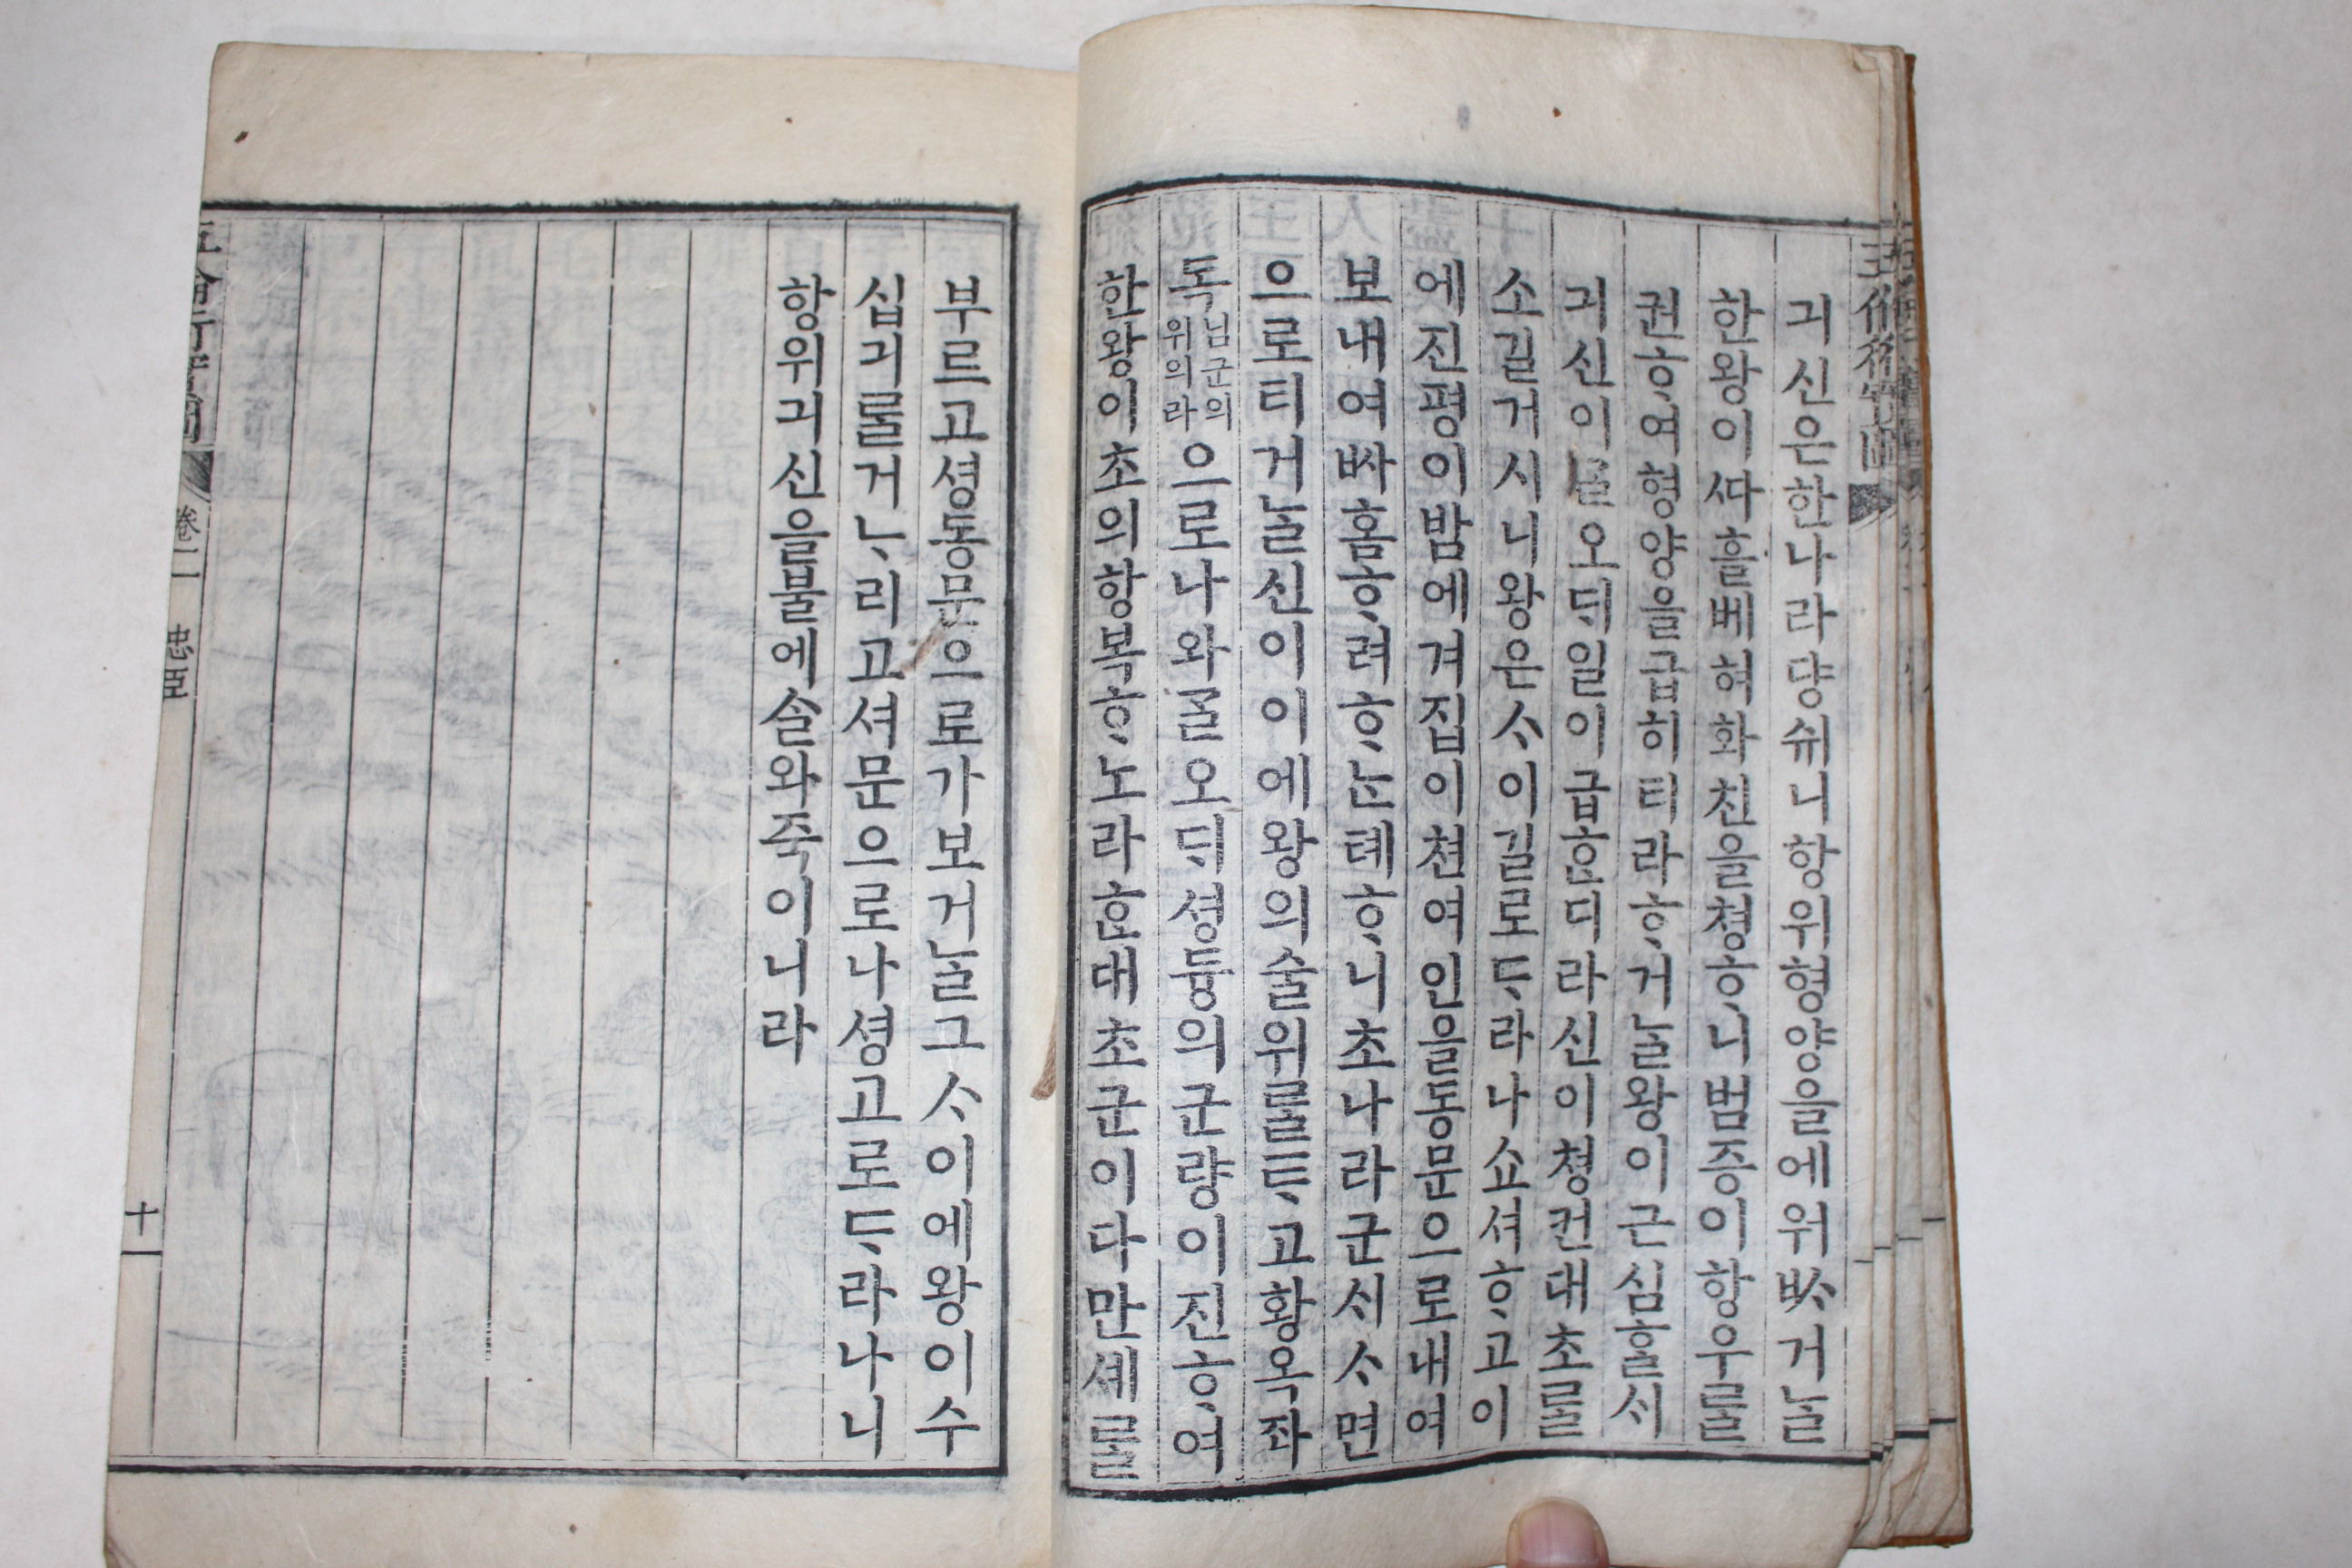 긔신은한나라댱쉬니항위형양을에워ᄡᅡ거ᄂᆞᆯ
한왕이싸흘베혀화친을쳥ᄒᆞ니범증이항우를
권ᄒᆞ여형양을급히티라ᄒᆞ거ᄂᆞᆯ왕이근심ᄒᆞᆯᄉᆡ
긔신이ᄀᆞᆯ오ᄃᆡ일이급ᄒᆞᆫ디라신이쳥컨대초를
소길거시니왕은ᄉᆞ이길로ᄃᆞ라나쇼셔ᄒᆞ고이
에진평이밤에겨집이쳔여인을동문으로내여
보내여ᄡᅡ홈ᄒᆞ려ᄒᆞᄂᆞᆫ톄ᄒᆞ니초나라군ᄉᆡᄉᆞ면
으로티거ᄂᆞᆯ신이이에왕의술위를ᄐᆞ고황옥좌
독님군의위의라으로나와ᄀᆞᆯ오ᄃᆡ셩듕의군량이진ᄒᆞ여
한왕이초의항복ᄒᆞ노라ᄒᆞᆫ대초군이다만셰를
부르고셩동문으로가보거ᄂᆞᆯ그ᄉᆞ이예왕이수
십긔를거ᄂᆞ리고셔문으로나셩고로ᄃᆞ라나니
항위긔신을블에ᄉᆞᆯ와죽이니라
卷二 忠臣
十